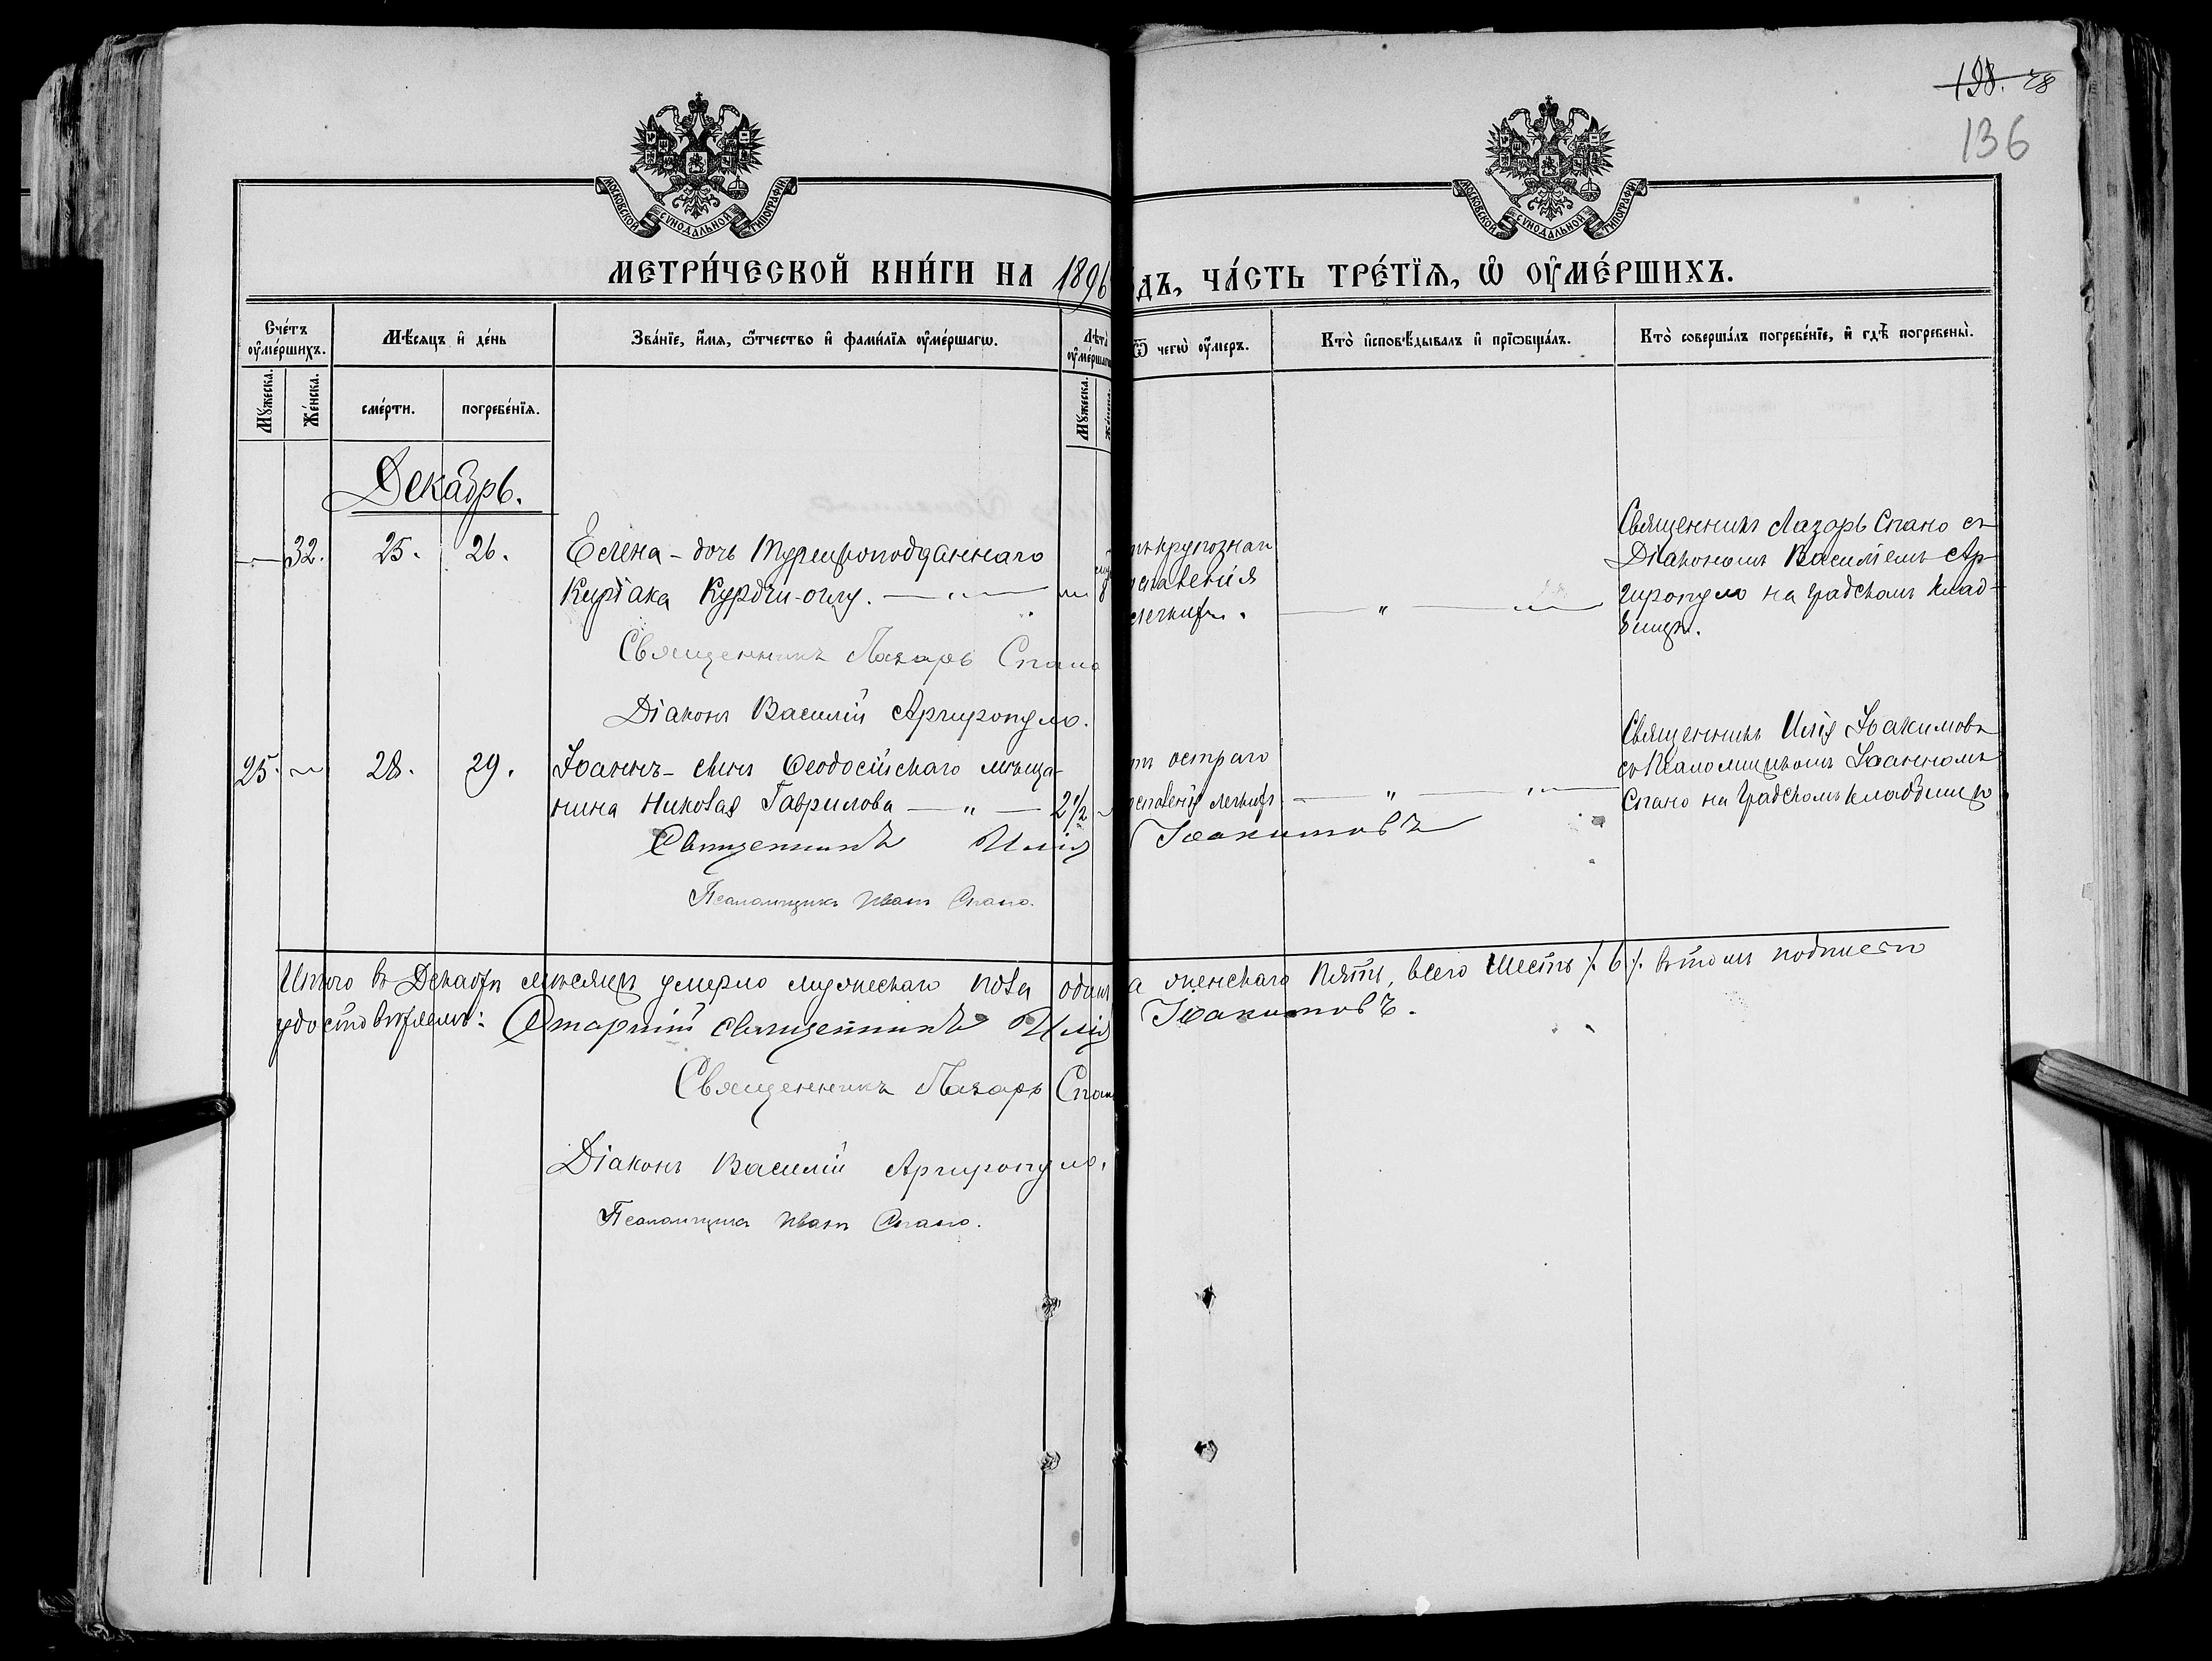 198. 28
136
МОСКОВСКОЙ СѴНОДАЛЬНОЙ ТИПОГРАФІИ
МОСКОВСКОЙ СѴНОДАЛЬНОЙ ТИПОГРАФІИ
МЕТРИ́ЧЕСКОЙ КНИ́ГИ НА 1896
ДЪ, ЧА́СТЬ ТРЕ́ТІѦ, Ѽ ОУМЕ́РШИХЪ.
Сче́тъ оуме́ршихъ.
Мѣ́сяцъ и де́нь
Зва́нїе, и́мя, ѻ́тчество и фами́лїя оуме́ршагѡ.
Лѣта̀ оуме́ршаг
Ѿ чегѡ̀ оу́меръ.
Кто̀ исповѣ́дывалъ и прїѡбща́лъ.
Кто̀ соверша́лъ погребе́нїе, и гдѣ̀ погребены̀.
Мꙋ́жеска.
Же́нска.
сме́рти.
погребе́нїя.
Мꙋ́жеска.
Декабрь.
32. 25. 26. Елена - дочь Турецкоподданнаго
Киріака Курдчи-оглу. — „ —
Священникъ Лазарь Спано
Діаконъ Василій Аргиропуло.
ъ крупознаго
спаленія
легкихъ.
— „ —
Священникъ Лазарь Спано съ
Діакономъ Василіемъ Ар-
гиропуло на градскомъ клад-
бищѣ.
25. 28. 29. Іоаннъ - сынъ Ѳеодосійскаго мѣща-
нина Николая Гаврилова — „ — 2 1/2
Священникъ Илія Іоакимовъ
Псаломщикъ Иванъ Спано.
тъ остраго
спаленія легкихъ — „ —
Священникъ Илія Іоакимовъ
съ Псаломщикомъ Іоанномъ
Спано на градскомъ кладбищѣ
Итого въ Декабрѣ мѣсяцѣ умерло мужескаго пола одинъ а женскаго пять, всего шесть /. 6 /. въ томъ подписью
удостовѣряемъ: Старшій священникъ Илія Іоакимовъ.
Священникъ Лазарь Спано
Діаконъ Василій Аргиропуло.
Псаломщикъ Иванъ Спано.